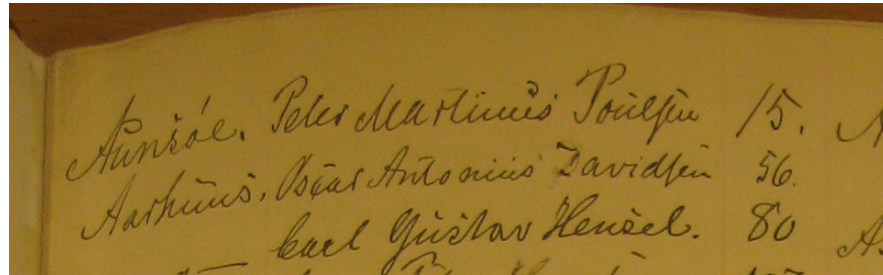 Aunsöe. Peter Martinus Poulsen 15.
Aarhuus. Oscar Antonius Davidsen 56.
Carl Gustav Hensel. 80